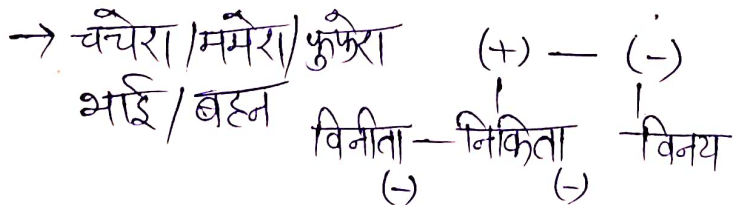 → चचेरा / ममेरा / फुफेरा (+) — (-)
भाई / बहन
विनीता — निकिता विनय
(-) (-)